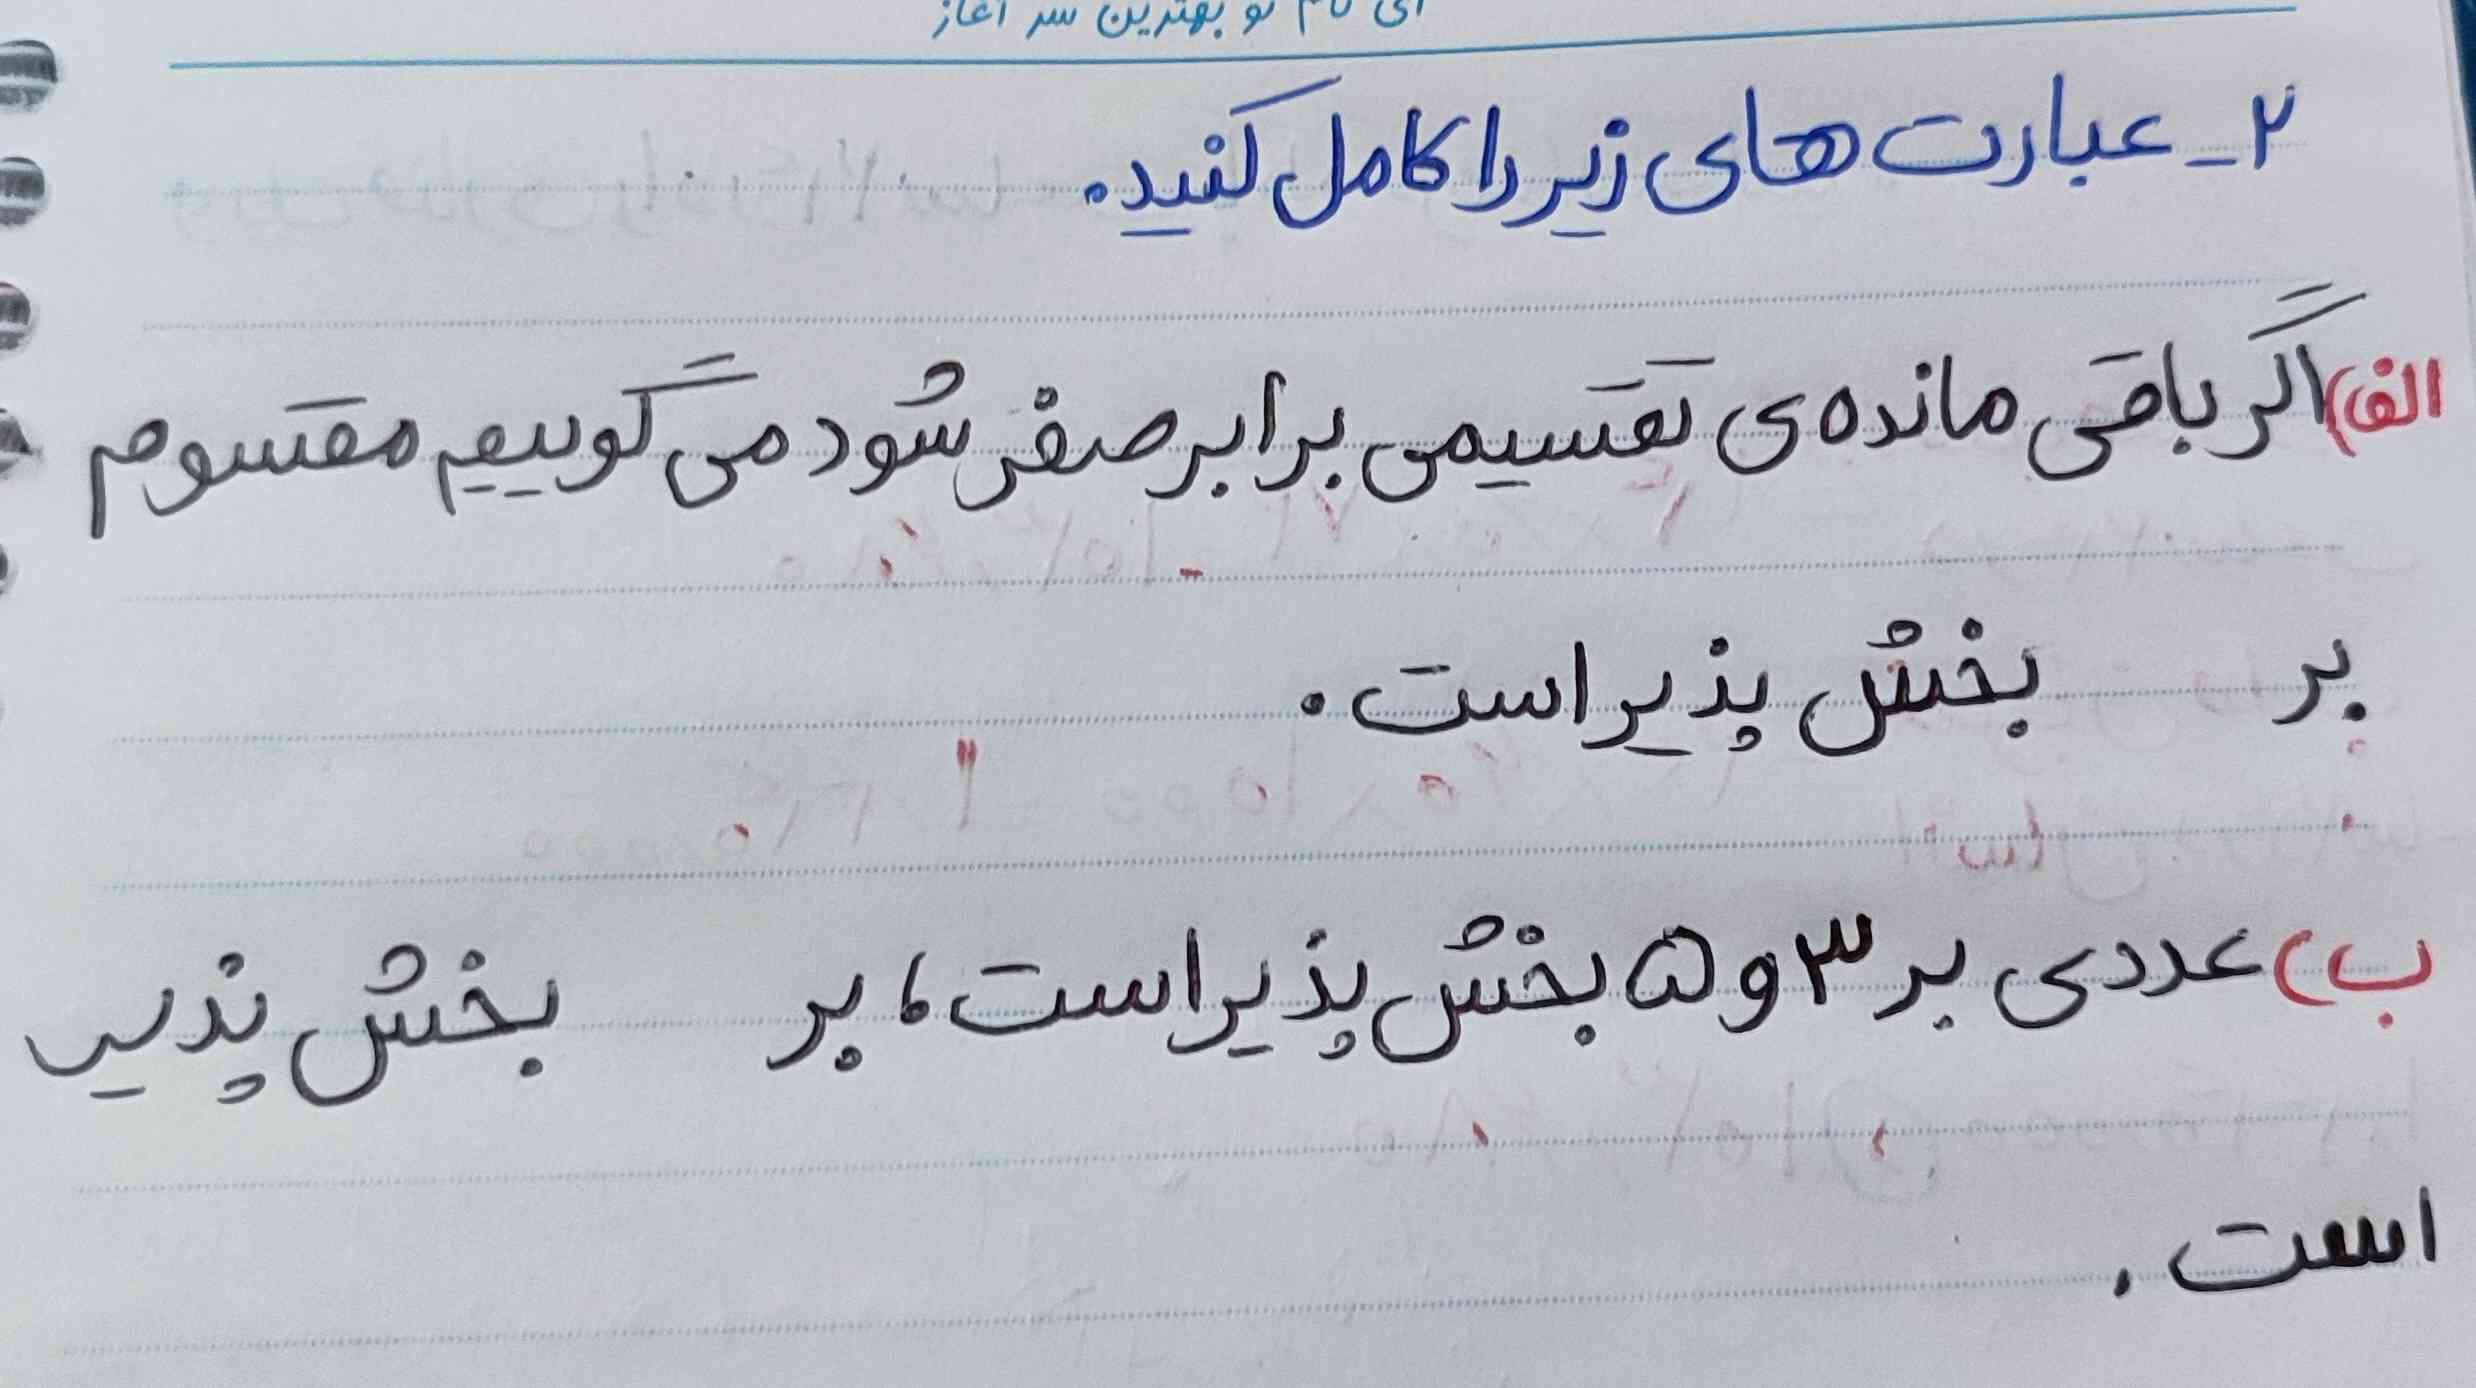 ای نام تو بهترین سر آغاز
۲_ عبارت های زیر را کامل کنید.
الف) اگر باقی مانده ی تقسیمی برابر صفر شود می گوییم مقسوم
بر بخش پذیر است.
ب) عددی بر ۳ و ۵ بخش پذیر است، بر بخش پذیر
است.